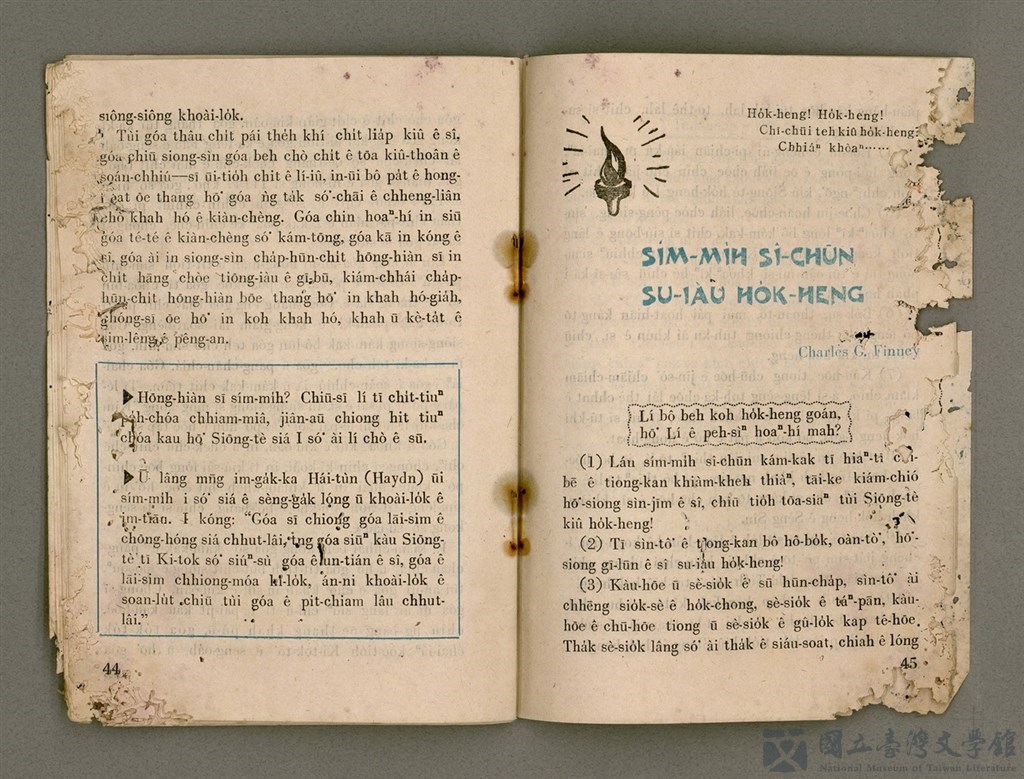 siông-siông khoài-lo̍k.
Tùi góa thâu chi̍t pái the̍h khí chi̍t lia̍p kiû ê sî,
góa phiū siong-sìn góa beh chò chi̍t ê tōa kiû-thoân ê
soán-chhiú—sī ūi-tio̍h chi̍t ê lí-iû, in-ūi bô pa̍t ê hong-
hoat ōe thang hō͘ góa ǹg ta̍k só͘-chāi ê chheng-liân
chò khah hó ê kiàn-chèng. Góa chin hoaⁿ-hí in siū
góa té-té ê kiàn-chèng só͘ kám-tōng, góa kā in kóng ê
sî, góa ài in siong-sìn cha̍p-hūn-chit hōng-hiàn sī in
chi̍t hāng chòe tiōng-iàu ê gī-bū, kiám-chhái cha̍p-
hūn-chit hōng-hiàn bōe thang hō͘ in khah hó-gia̍h,
chóng-sī ōe hō͘ in koh khah hó, khah ū kè-ta̍t ê
sim-lêng ê pêng-an.
Hōng-hiàn sī sím-mi̍h? Chiū-sī lí tī chit-tiuⁿ
pe̍h-chóa chhiam-miâ, jiân-āu chiong hit tiuⁿ
chóa kau hō͘ Siōng-tè siá I só͘ ài lí chò ê sū.
Ū lâng mn̄g im-ga̍k-ka Hái-tùn (Haydn) ūi
sím-mi̍h i só͘ siá ê sèng-ga̍k lóng ū khoài-lo̍k ê
im-tiāu. I kóng: "Góa sī chiong góa lāi-sim ê
chōng-hóng siá chhut-lâi, tng góa siūⁿ kàu Siōng-
tè tī Ki-tok só͘ siúⁿ-sù góa ê un-tián ê sî, góa ê
lāi-sim chhiong-móa hí-lo̍k, án-ni khoài-lo̍k ê
soan-lu̍t chiū tùi góa ê pit-chiam lâu chhut-
lâi."
44
Ho̍k-heng! Ho̍k-heng!
Chī-chūi teh kiû ho̍k-heng?
Chhiáⁿ khòaⁿ……
SÍM-MI̍H SÎ-CHŪN
SU-IÀU HO̍K-HENG
Charles G. Finney
Lí bô beh koh ho̍k-heng goán,
hō͘ Lí ê peh-sìⁿ hoaⁿ-hí mah?
(1) Lán sím-mi̍h sî-chūn kám-kak tī hiaⁿ-tī chí-
bē ê tiong-kan khiàm-kheh thiàⁿ, tāi-ke kiám-chió
hō͘-siong sìn-jīm ê sî, chiū tio̍h tōa-siaⁿ tùi Siōng-tè
kiû ho̍k-heng!
(2) Tī sìn-tô͘ ê tiong-kan bô hô-bo̍k, oàn-tò͘, hō͘-
siong gī-lūn ê sî su-iàu ho̍k-heng!
(3) Kàu-hōe ê sè-sio̍k ê sū hūn-cha̍p, sìn-tô͘ ài
chhēng sio̍k-sè ê ho̍k-chong, sè-sio̍k ê táⁿ-pān, kàu-
hōe ê chū-hōe tiong ū sè-sio̍k ê gû-lo̍k kap tê-hōe.
Tha̍k sè-sio̍k lâng só͘ ài tha̍k ê siáu-soat, chiah ê lóng
45
國立臺灣文學館
National Museum of Taiwan Literature